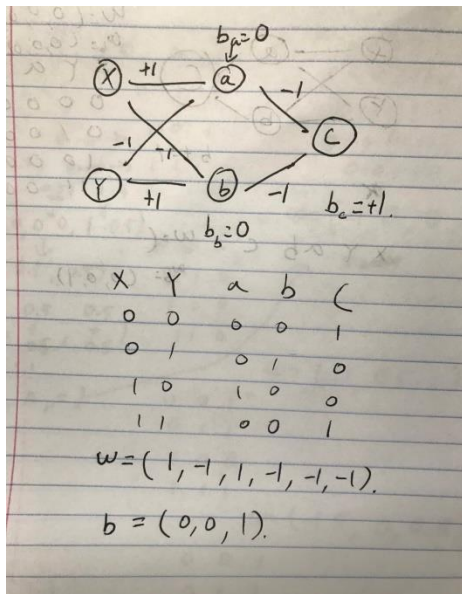 b_a=0
X +1 a -1
C
-1 -1
Y +1 b -1 b_c=+1.
b_b=0
X Y a b C
0 0 0 0 1
0 1 0 1 0
1 0 1 0 0
1 1 0 0 1
w=(1,-1,1,-1,-1,-1).
b=(0,0,1).